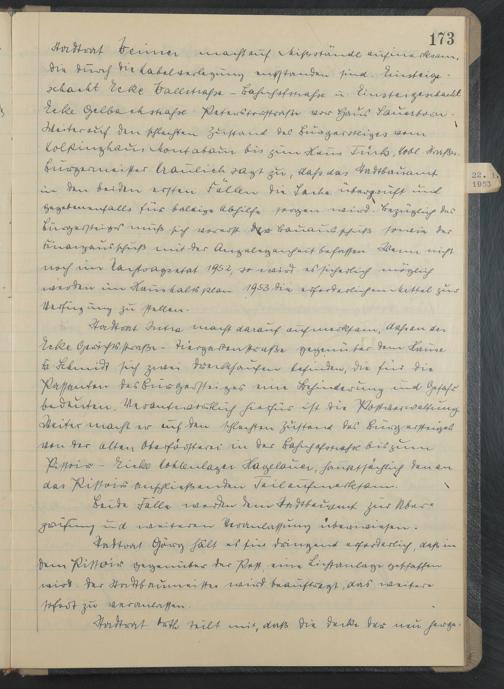 173
Stadtrat macht auf Mißstände aufmerksam,
die durch die Kabelverlegung entstanden sind. Einsteige-
schacht Ecke Wallstraße - Bahnhofstraße u. Einsteigeschacht
Ecke Gelbachstraße Peterstorstraße vor Haus Sauerborn.
Weiter auf den schlechten Zustand des Bürgersteiges vom
Kolpinghaus Montabaur bis zum Haus Türk, Kobl. Straße.
Bürgermeister sagt zu, daß das Stadtbauamt
in den beiden ersten Fällen die Sache überprüft und
gegebenenfalls für baldige Abhilfe sorgen wird. Bezüglich des
Bürgersteigs muß sich vorerst der Bauausschuß sowie der
Finanzausschuß mit der Angelegenheit befassen. Wenn nicht
noch im Nachtragsetat 1952, so wird es sicherlich möglich
werden im Haushaltsplan 1953 die erforderlichen Mittel zur
Verfügung zu stellen.
22. 1.
1953
Stadtrat macht darauf aufmerksam, daß an der
Ecke Gerichtsstraße - Tiergartenstraße gegenüber dem Hause
Schmidt sich zwei befinden, die für die
Passanten des Bürgersteiges eine Behinderung und Gefahr
bedeuten. Verantwortlich hierfür ist die Postverwaltung
Weiter macht er auf den schlechten Zustand des Bürgersteiges
von der alten Oberförsterei in der Bahnhofstraße bis zum
Pissoir - Ecke Kohlenlager Hagelauer, hauptsächlich den an
das Pissoir anschließenden Teil aufmerksam.
Beide Fälle werden dem Stadtbauamt zur Über-
prüfung und weiteren Veranlassung überwiesen.
Stadtrat Görg hält es für dringend erforderlich, daß in
dem Pissoir gegenüber der Post, eine Lichtanlage geschaffen
wird. Der Stadtbaumeister wird beauftragt, das weitere
sofort zu veranlassen.
Stadtrat Orth teilt mit, daß die Decke der neu herge-